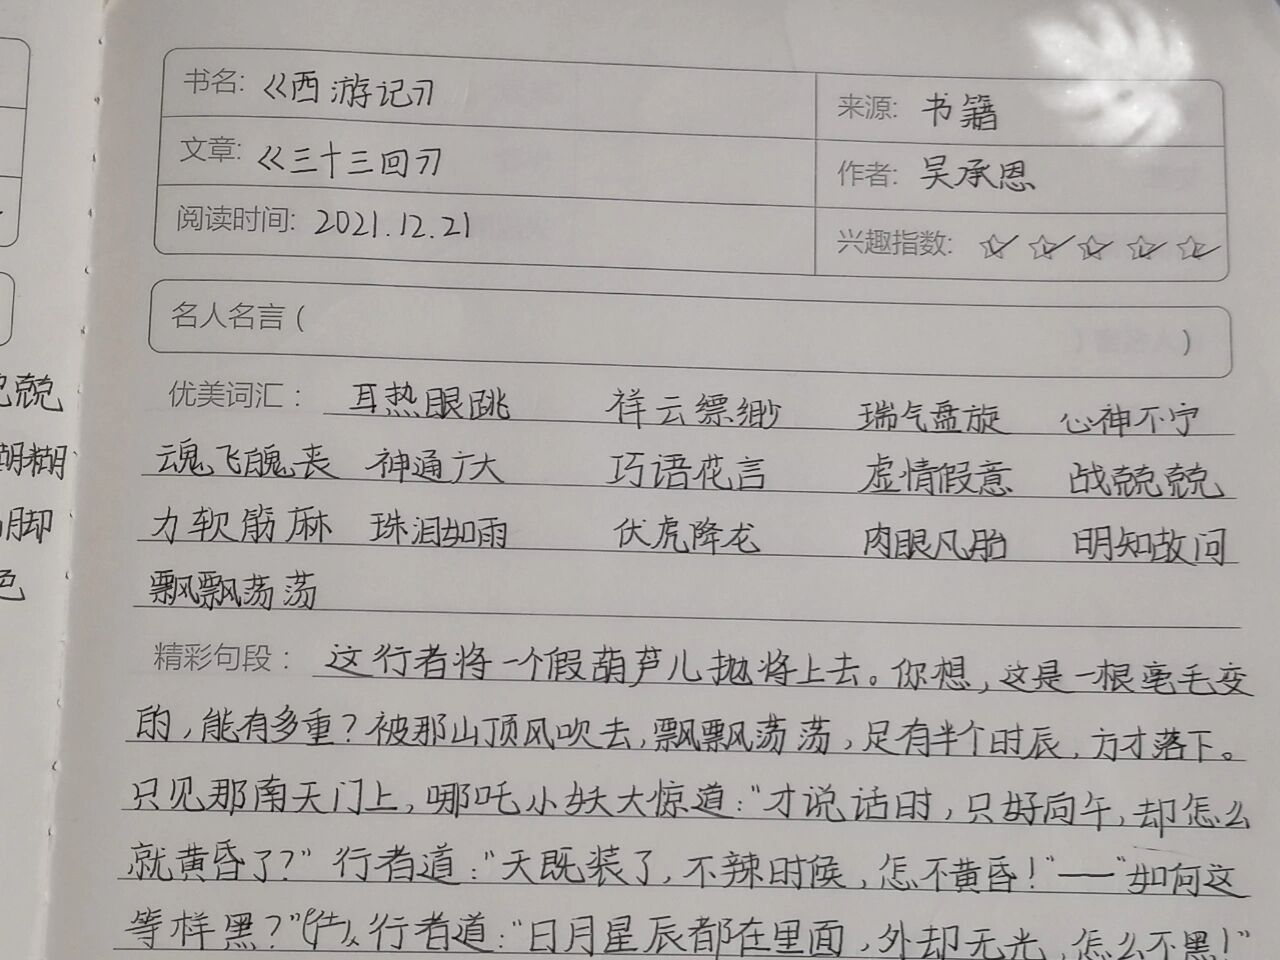 书名: 《西游记》
来源: 书籍
文章: 《三十三回》
作者: 吴承恩
阅读时间: 2021.12.21
兴趣指数: ☆☆☆☆☆
名人名言 ( )
优美词汇： 耳热眼跳 祥云缥缈 瑞气盘旋 心神不宁
魂飞魄丧 神通广大 巧语花言 虚情假意 战兢兢
力软筋麻 珠泪如雨 伏虎降龙 肉眼凡胎 明知故问
飘飘荡荡
精彩句段： 这行者将一个假葫芦儿抛将上去。你想，这是一根毫毛变
的，能有多重？被那山顶风吹去，飘飘荡荡，足有半个时辰，方才落下。
只见那南天门上，哪吒小妖大惊道："才说话时，只好向午，却怎么
就黄昏了？"行者道："天既装了，不辣时候，怎不黄昏！"——"如何这
等样黑？"行者道："日月星辰都在里面，外却无光，怎么不黑！"
兢
糊
脚
色